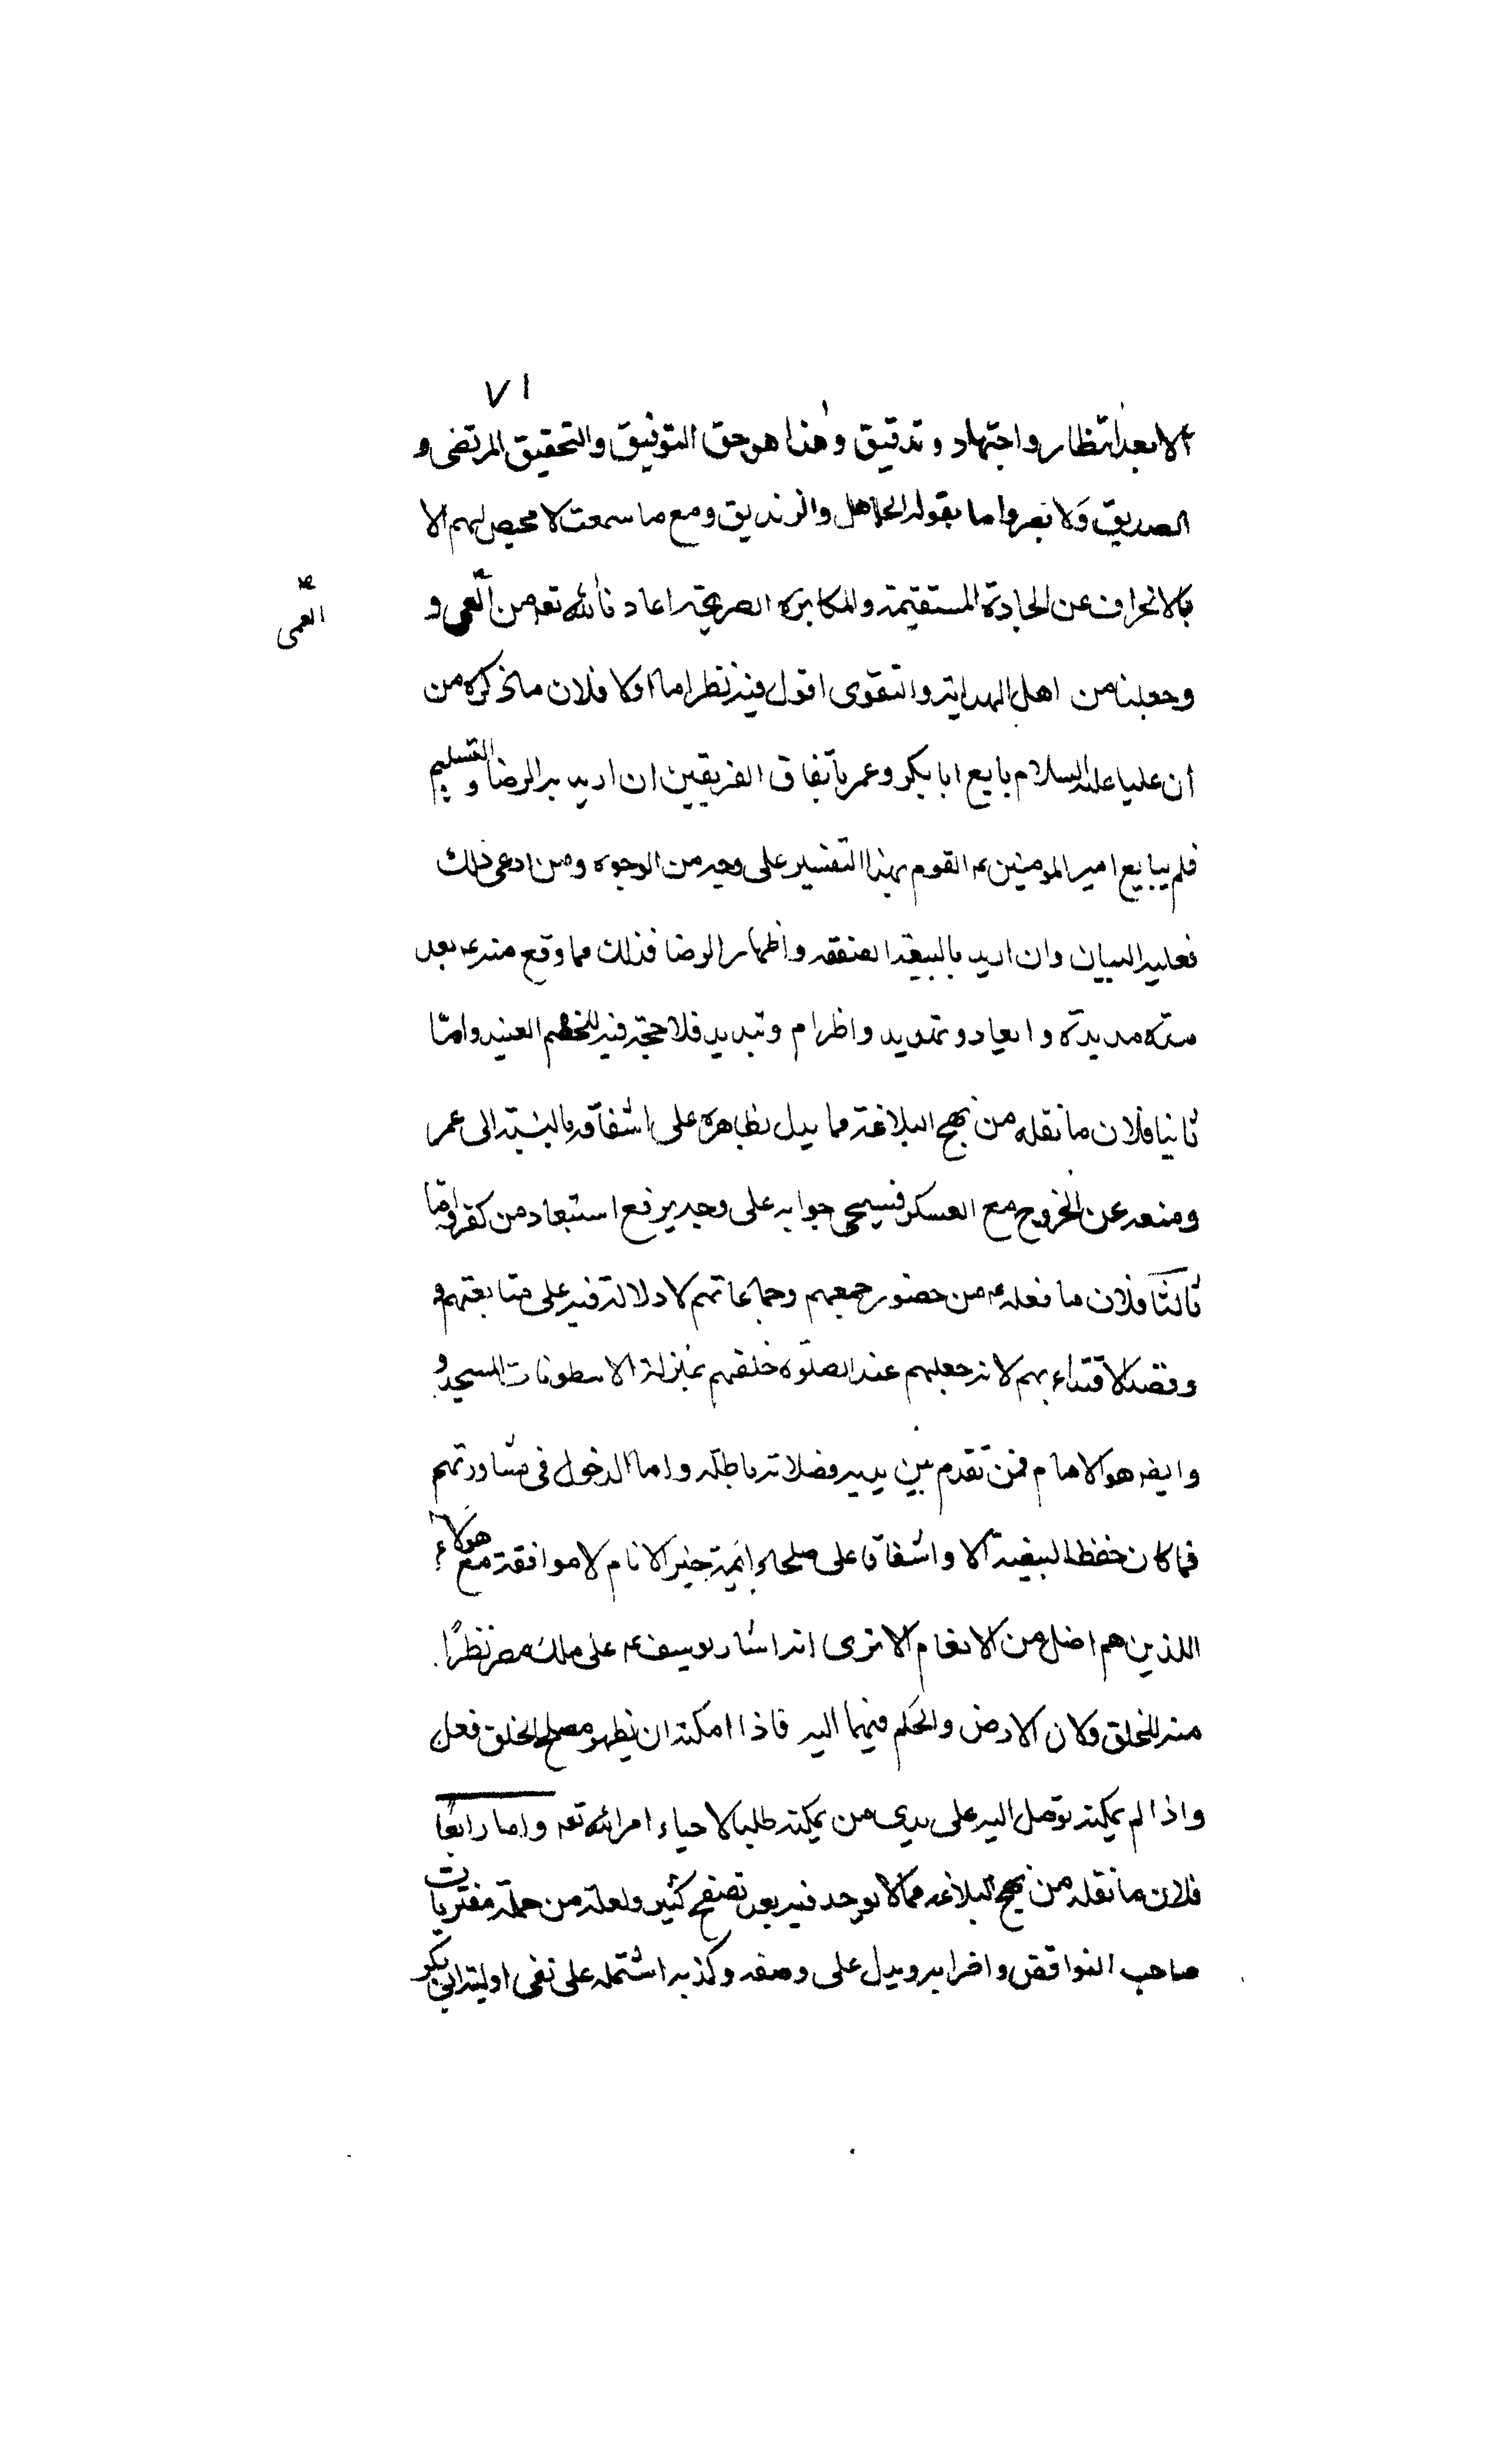 ٧١
الا بعد انتظار واجتهاد و تدقيق وهذا هو حق التوفيق والتحقيق المرتضى و
الصديق ولا تعبروا ما يقوله الجاهل والزنديق ومع ما سمعت لا محيص لهم الا
بالانحراف عن الجادة المستقيمة والمكابرة الصريحة اعاذنا الله تعه من العمى و
العمى
وجعلنا من اهل الهداية والتقوى اقول فيه نظر اما اولا فلان ما ذكره من
أن عليا عليه السلام بايع ابا بكر وعمر باتفاق الفريقين ان اريد به الرضا والتسليم
فلم يبايع امير المومنين عه القوم بهذا التفسير على وجه من الوجوه ومن ادعى ذلك
فعليه البيان وان اريد بالبيعة الصفقه واظهار الرضا فذلك مما وقع منه عه بعد
مدة مديدة و ابعاد و تهديد واظرام وتبديد فلا حجة فيه للخصم العنيد واما
ثانيا فلان ما نقله من نهج البلاغة مما يدل بظاهره على اشفاقه بالنسبة الى عمر
ومنعه عن الخروج مع العسكر فسيجى جوابه على وجه يرفع استبعاد من كفر واما
ثالثا فلان ما فعله عه من حضور جمعهم وجماعاتهم لا دلالة فيه على متابعتهم و
وقصد الاقتداء بهم لانه جعلهم عند الصلوة خلفهم بمنزلة الاسطونات المسجد و
وايضه هو الامام فمن تقدم بين يديه فصلاته باطلة واما الدخول فى مشاورتهم
فما كان حفظ البيضة الا واشفاقا على صلحاء ائمة خير الانام لا موافقة مع هولاء
اللذين هم اضل من الانعام الا ترى انه اشار يوسف عه على ملك مصر نظرًا
منه للخلق ولان الارض والحكم فيهما اليه فاذا امكنه ان يظهر مصلح الخلق فعل
واذا لم يمكنه توصل اليه على يدى من يمكنه طلبا لاحياء امر الله تعه واما رابعًا
فلان ما نقله من نهج البلاغه مما لا يوجد فيه بعد تصفح كثير ولعله من جملة مفتريات
صاحب النواقض واضرابه ويدل على وضعه وكذبه اشتمله على نفى اولية ابى بكر